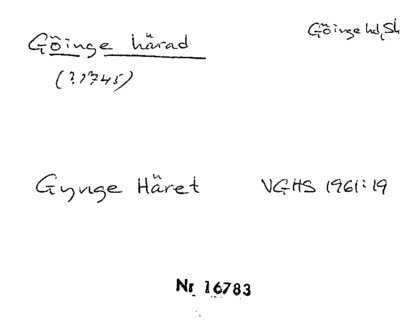 Göinge härad
Göinge hd, Sk
(?1745)
Gynge Häret VGHS 1961:19
Nr 16783